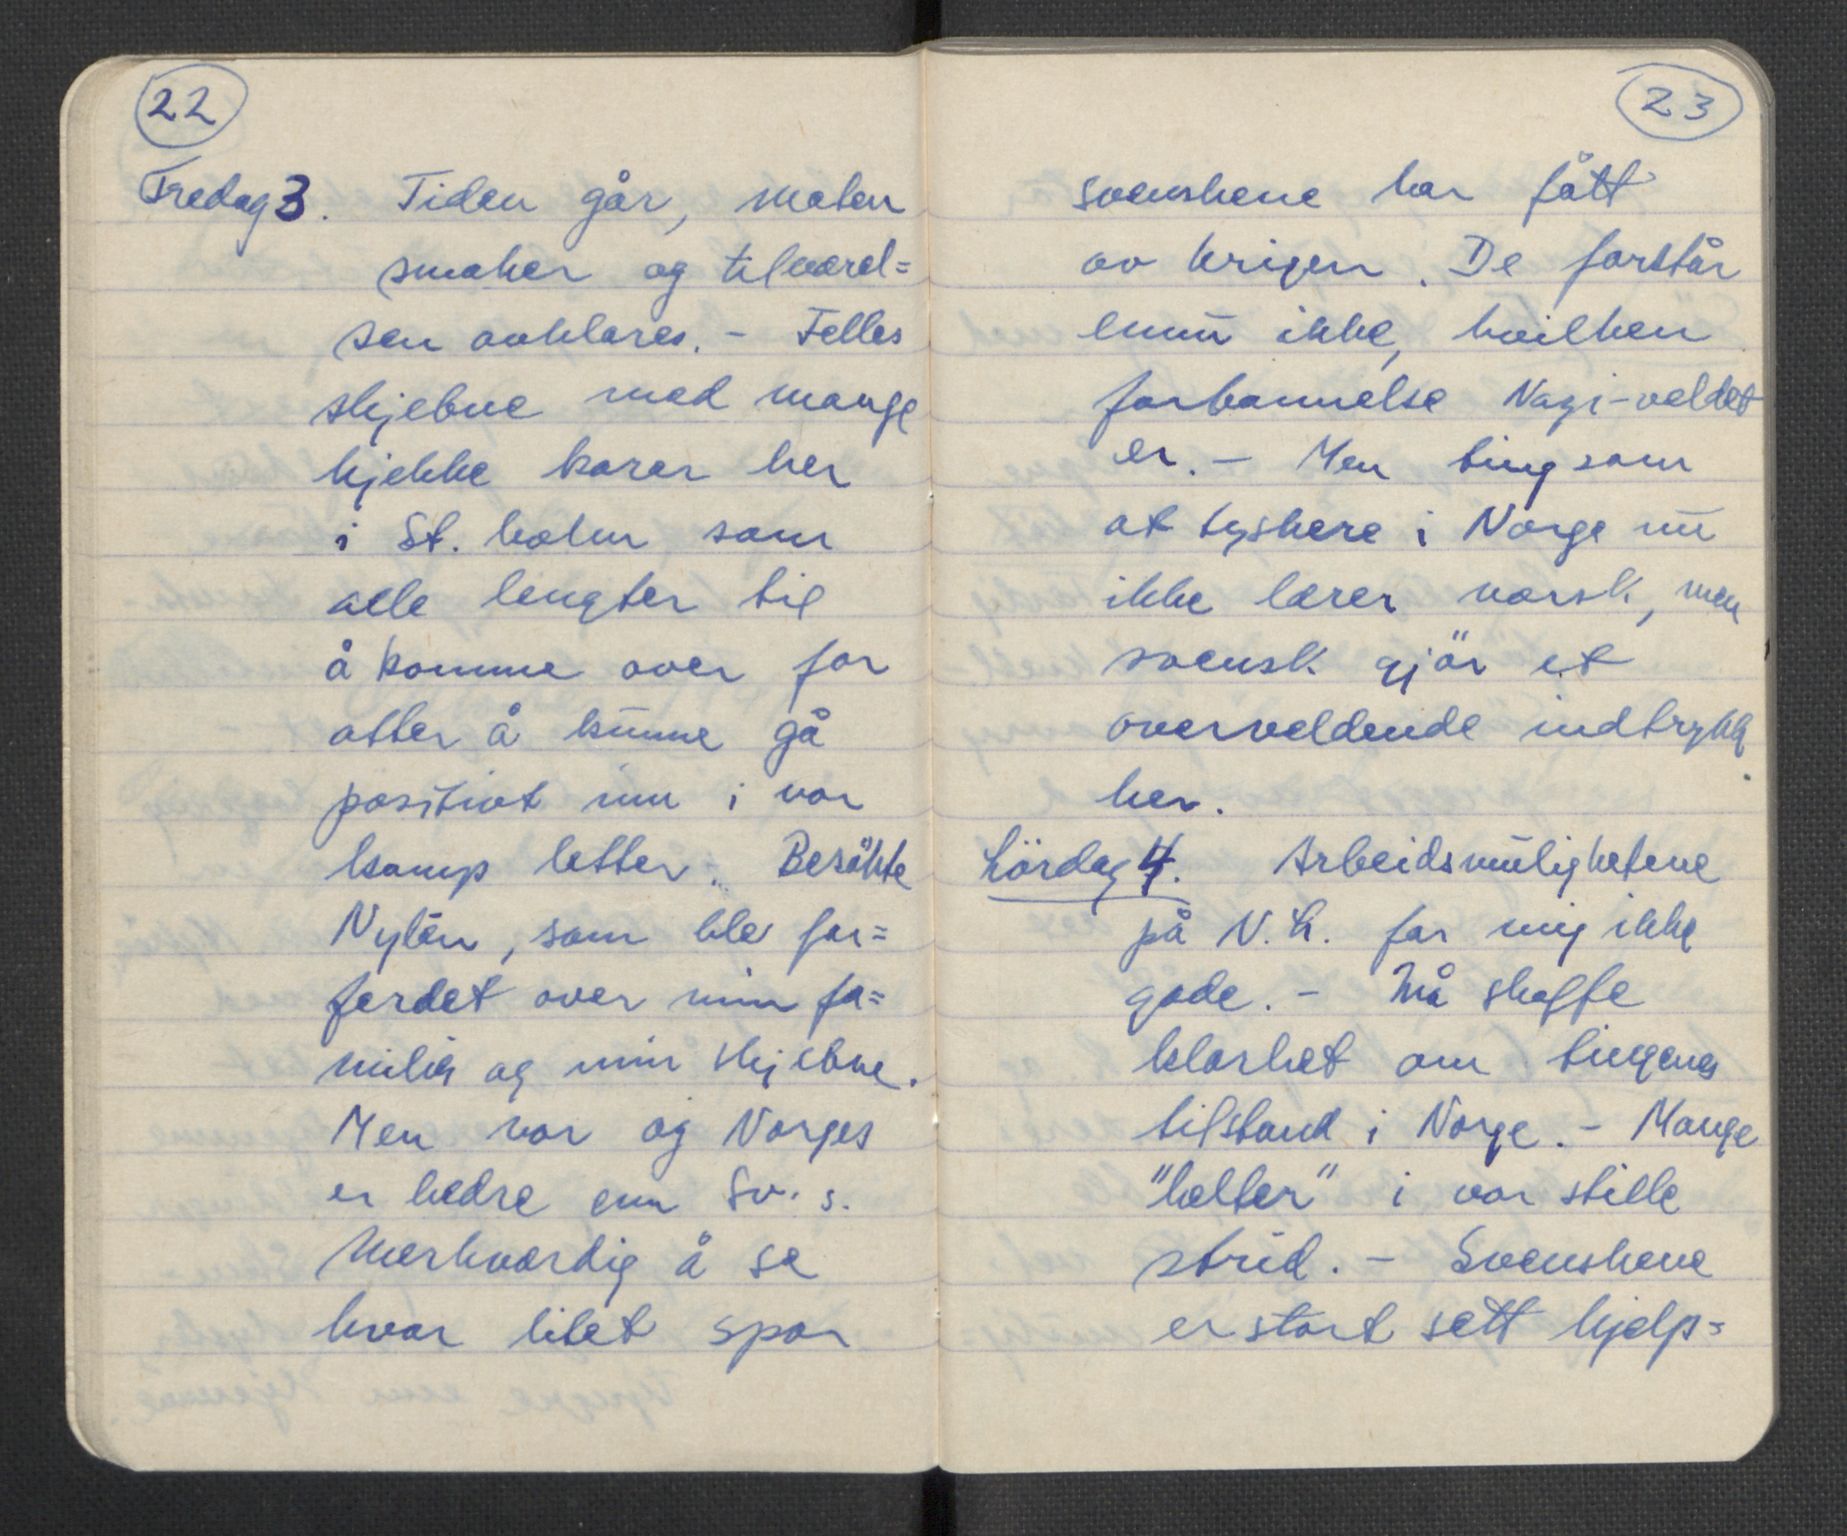 22
Fredag 3. Tiden går, maten
smaker og tilværel=
sen avklares. - Felles
skjebne med mange
kjekke karer her
i St. holm som
alle lengter til
å komme over for
atter å kunne gå
positivt inn i vor
kamp etter. Besökte
Nylén, som ble for=
ferdet over min fa=
milie og min skjebne.
Men vor og Norges
er bedre enn Sv. s.
Merkværdig å se
hvor litet spor
23
svenskene har fått
av krigen. De forstår
ennu ikke, hvilken
forbannelse Nazi-veldet
er. - Men ting som
at tyskere i Norge nu
ikke lærer norsk, men
svensk gjör et
overveldende indtrykk
her.
Lördag 4. Arbeidsmulighetene
på N. L. for mig ikke
gode. - Må skaffe
klarhet om tingenes
tilstand i Norge. - Mange
"helter" i vor stille
strid. - Svenskene
er stort sett hjelp=